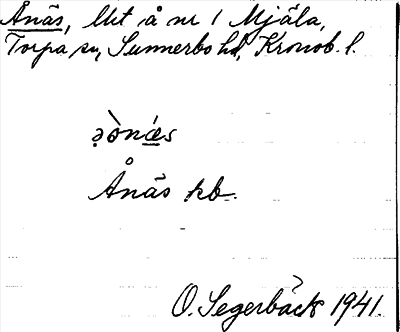 Ånäs, lht å nr 1 Mjäla,
Torpa sn, Sunnerbo hd, Kronob. l.
Ånäs kb.
O. Segerbäck 1941.